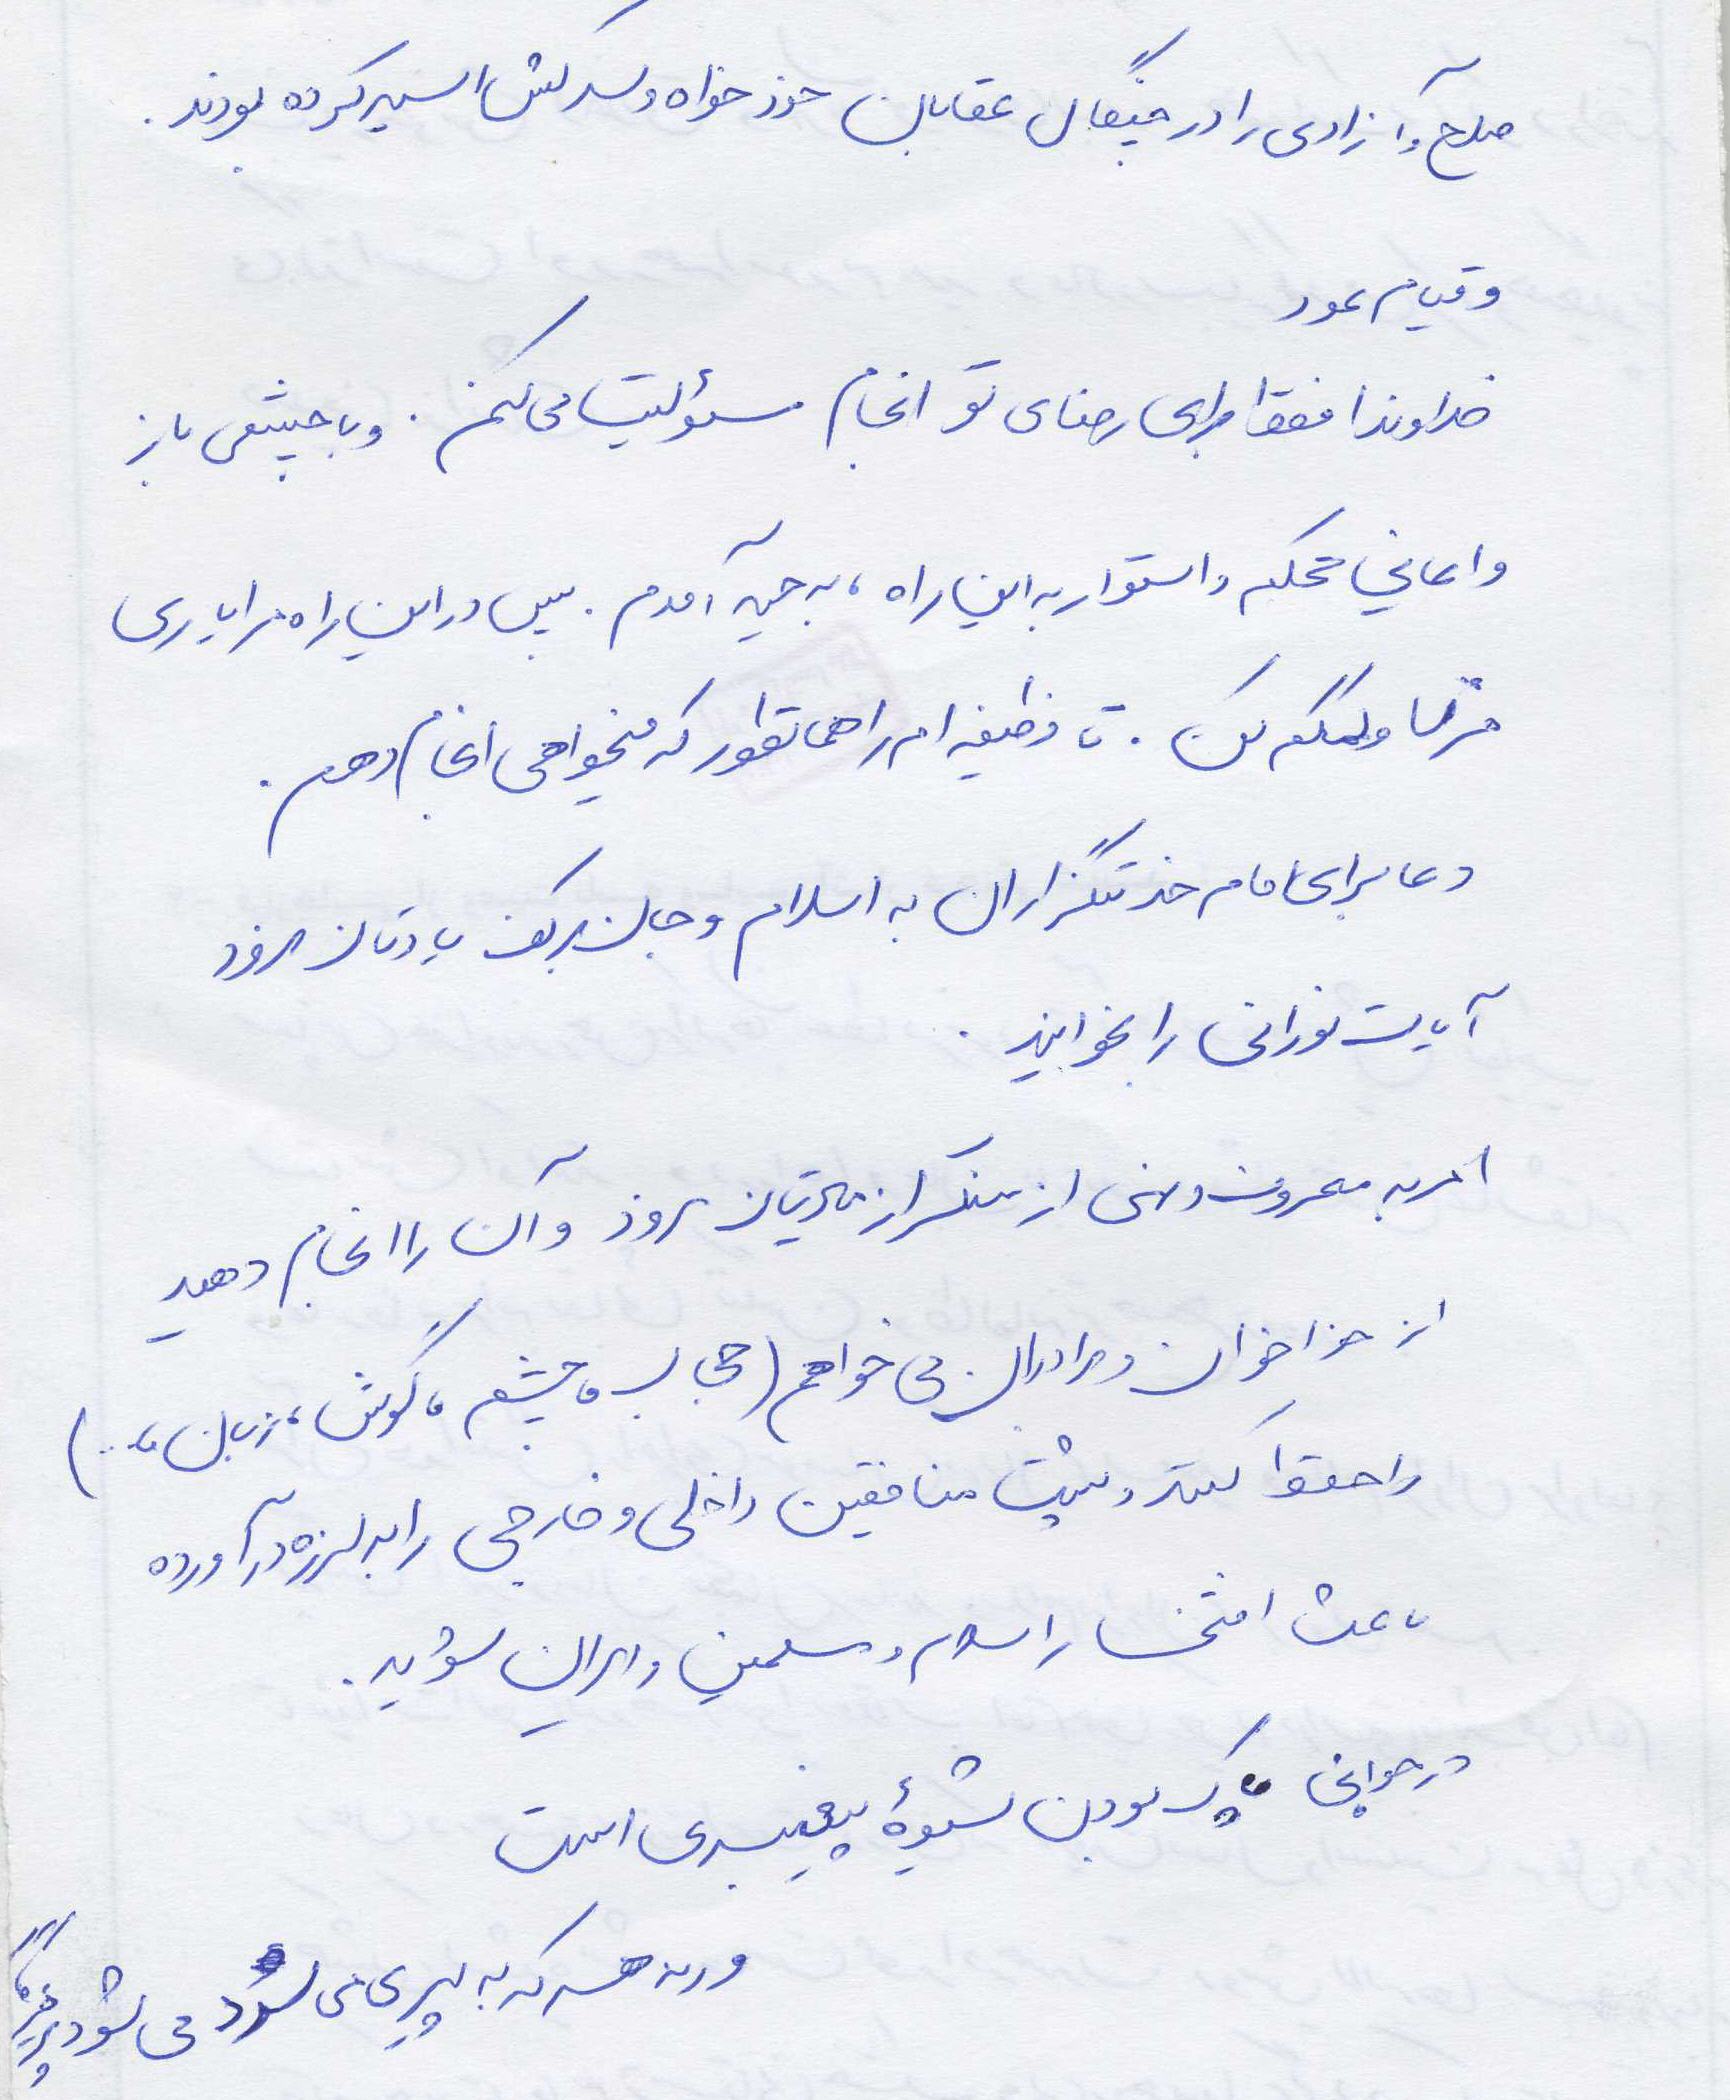 صلح و آزادی را در چنگال عقابان خودخواه و سرکش اسیر کرده بودند.
و قیام نمود
خداوندا فقط برای رضای تو انجام مسئولیت می کنم. و با چشمی باز
و ایمانی محکم و استوار به این راه، به جبهه آمدم. پس در این راه مرا یاری
کن. تا وظیفه ام را همانطور که میخواهی انجام دهم.
دعا برای امام خدمتگزاران به اسلام و جان بر کف یادتان نرود
آیات نورانی را بخوانید.
امر به معروف و نهی از منکر از یادتان نرود و آن را انجام دهید
از خواهران و برادران می خواهم (حجاب، چشم، گوش، زبان، ...)
را حفظ کنند و پشت منافقین داخلی و خارجی را به لرزه درآورده
باعث افتخار اسلام و مسلمین و ایران شوید.
در جوانی پاک بودن شیوهٔ پیغمبری است
ورنه هر که به پیری می رسد می شود پرهیزگار